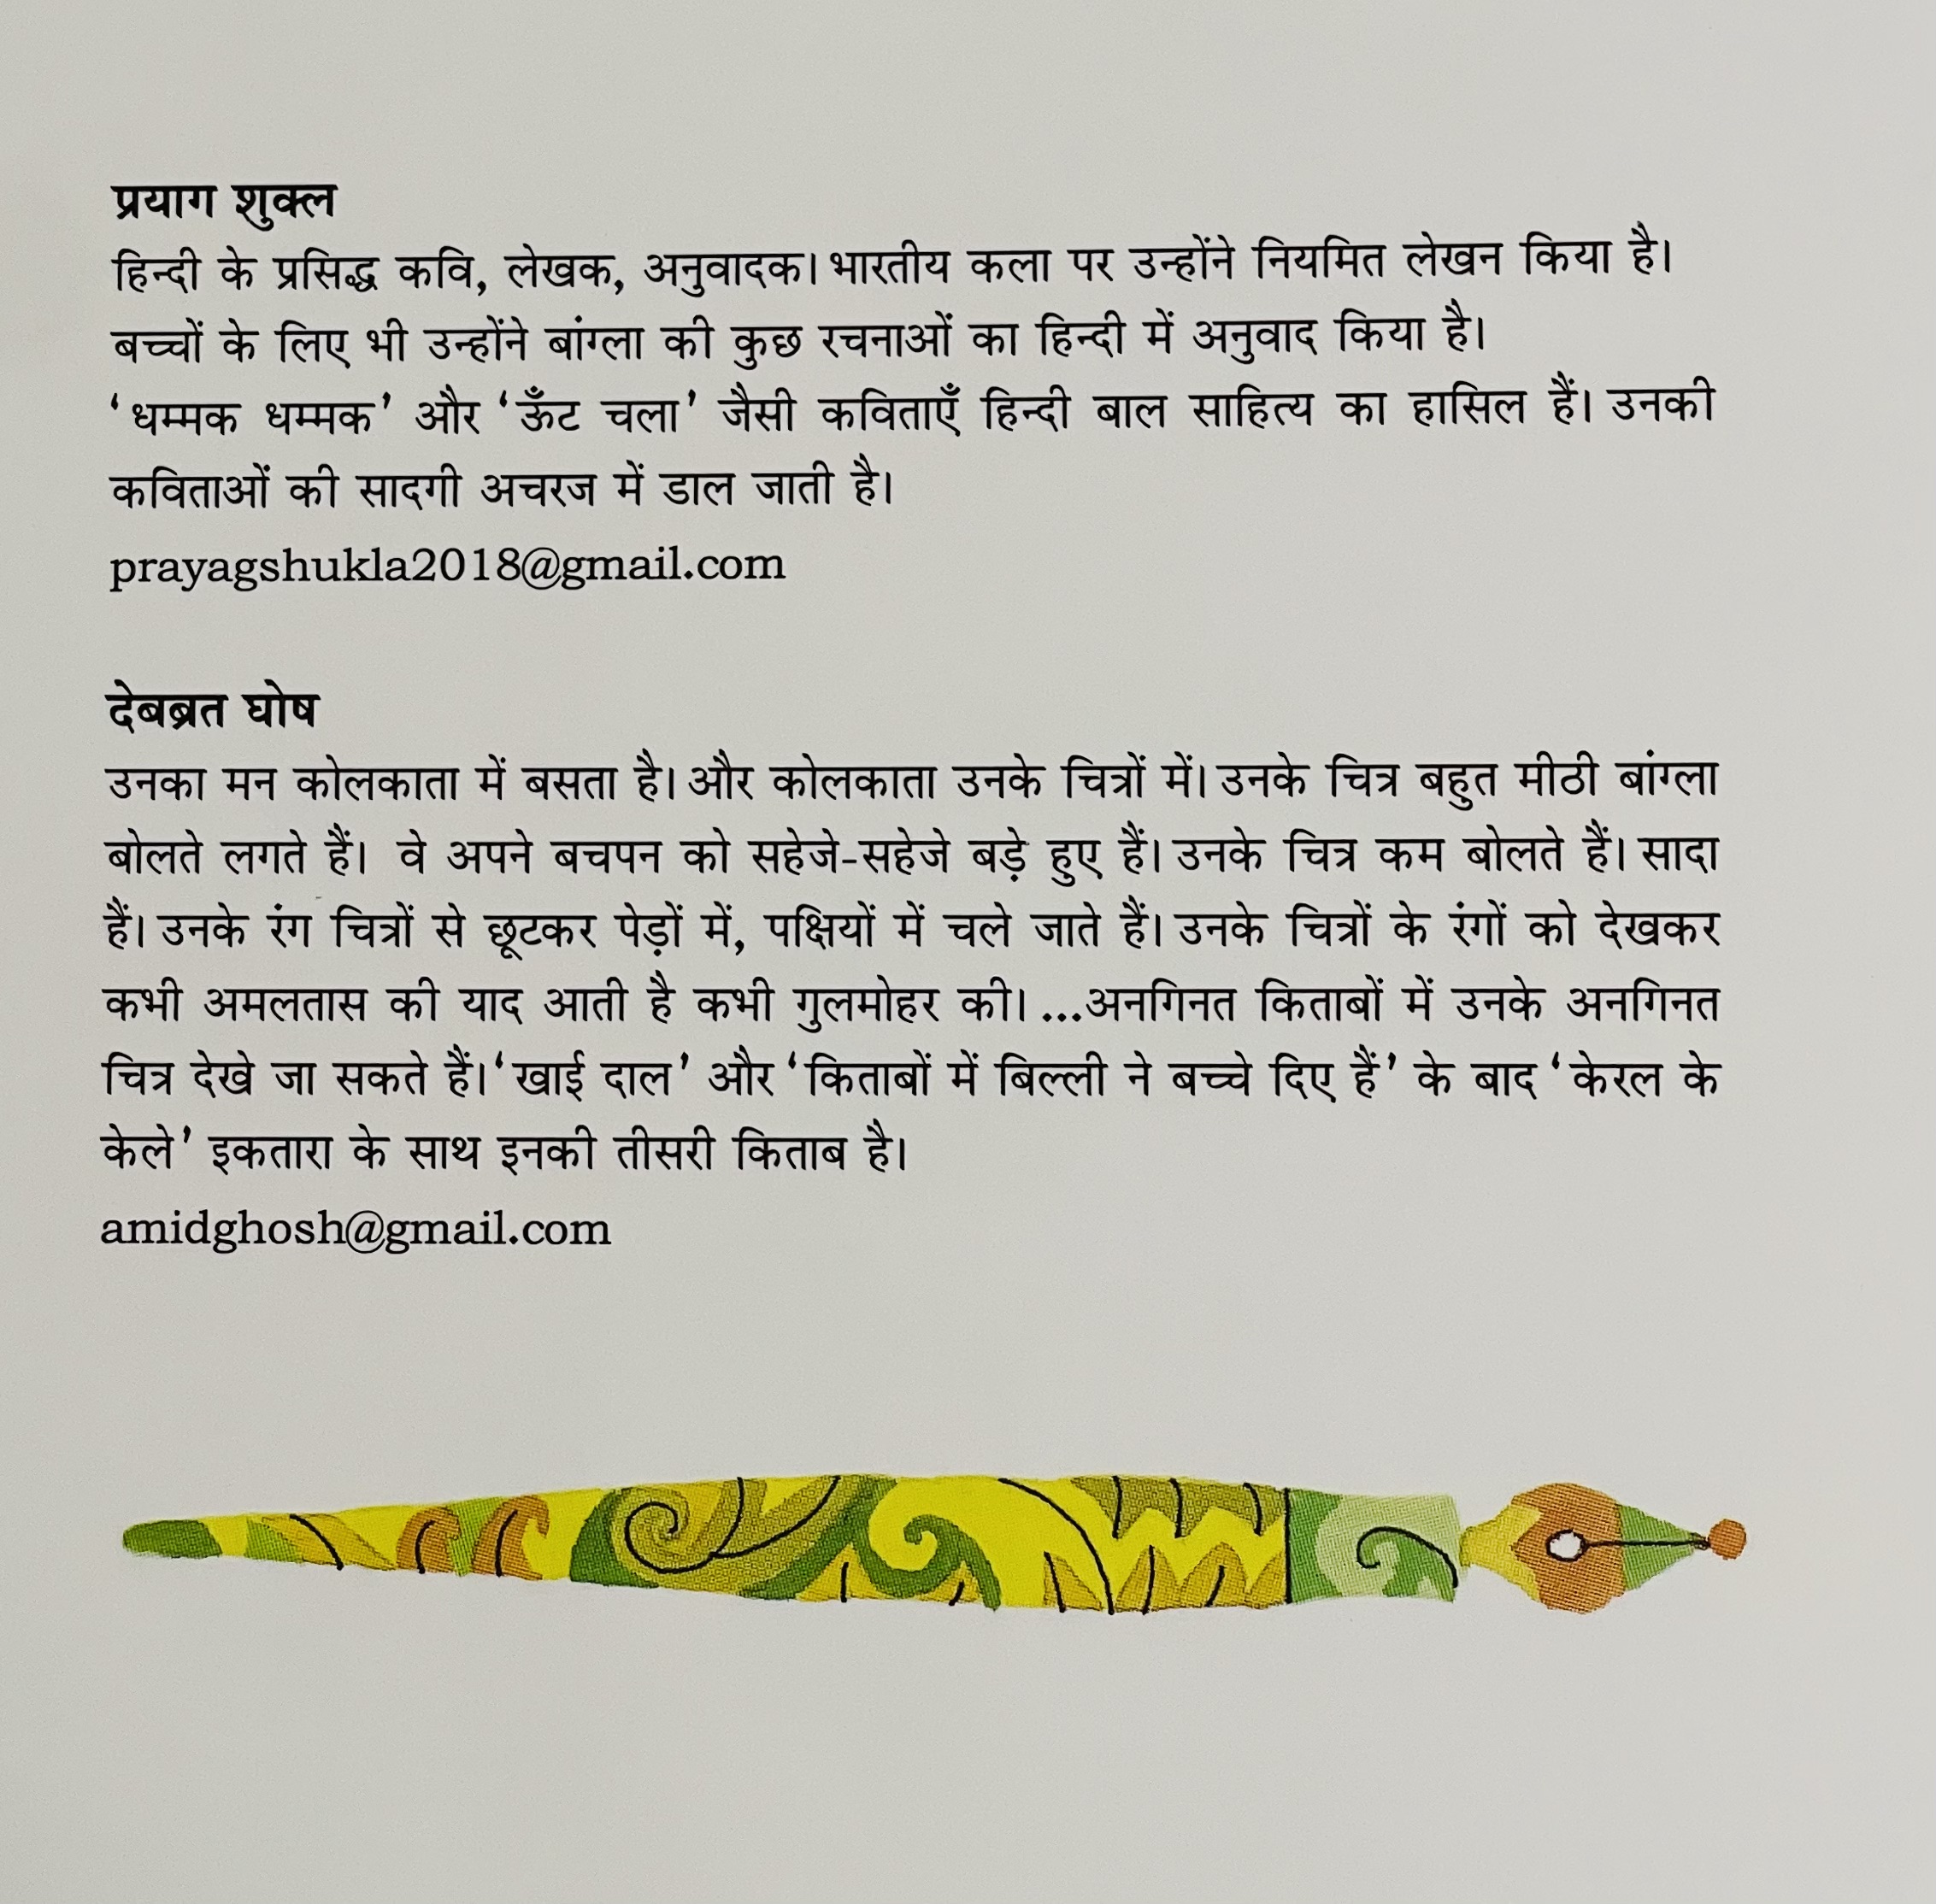 प्रयाग शुक्ल
हिन्दी के प्रसिद्ध कवि, लेखक, अनुवादक। भारतीय कला पर उन्होंने नियमित लेखन किया है।
बच्चों के लिए भी उन्होंने बांग्ला की कुछ रचनाओं का हिन्दी में अनुवाद किया है।
‘धम्मक धम्मक’ और ‘ऊँट चला’ जैसी कविताएँ हिन्दी बाल साहित्य का हासिल हैं। उनकी
कविताओं की सादगी अचरज में डाल जाती है।
prayagshukla2018@gmail.com
देबब्रत घोष
उनका मन कोलकाता में बसता है। और कोलकाता उनके चित्रों में। उनके चित्र बहुत मीठी बांग्ला
बोलते लगते हैं। वे अपने बचपन को सहेजे-सहेजे बड़े हुए हैं। उनके चित्र कम बोलते हैं। सादा
हैं। उनके रंग चित्रों से छूटकर पेड़ों में, पक्षियों में चले जाते हैं। उनके चित्रों के रंगों को देखकर
कभी अमलतास की याद आती है कभी गुलमोहर की। ...अनगिनत किताबों में उनके अनगिनत
चित्र देखे जा सकते हैं। ‘खाई दाल’ और ‘किताबों में बिल्ली ने बच्चे दिए हैं’ के बाद ‘केरल के
केले’ इकतारा के साथ इनकी तीसरी किताब है।
amidghosh@gmail.com